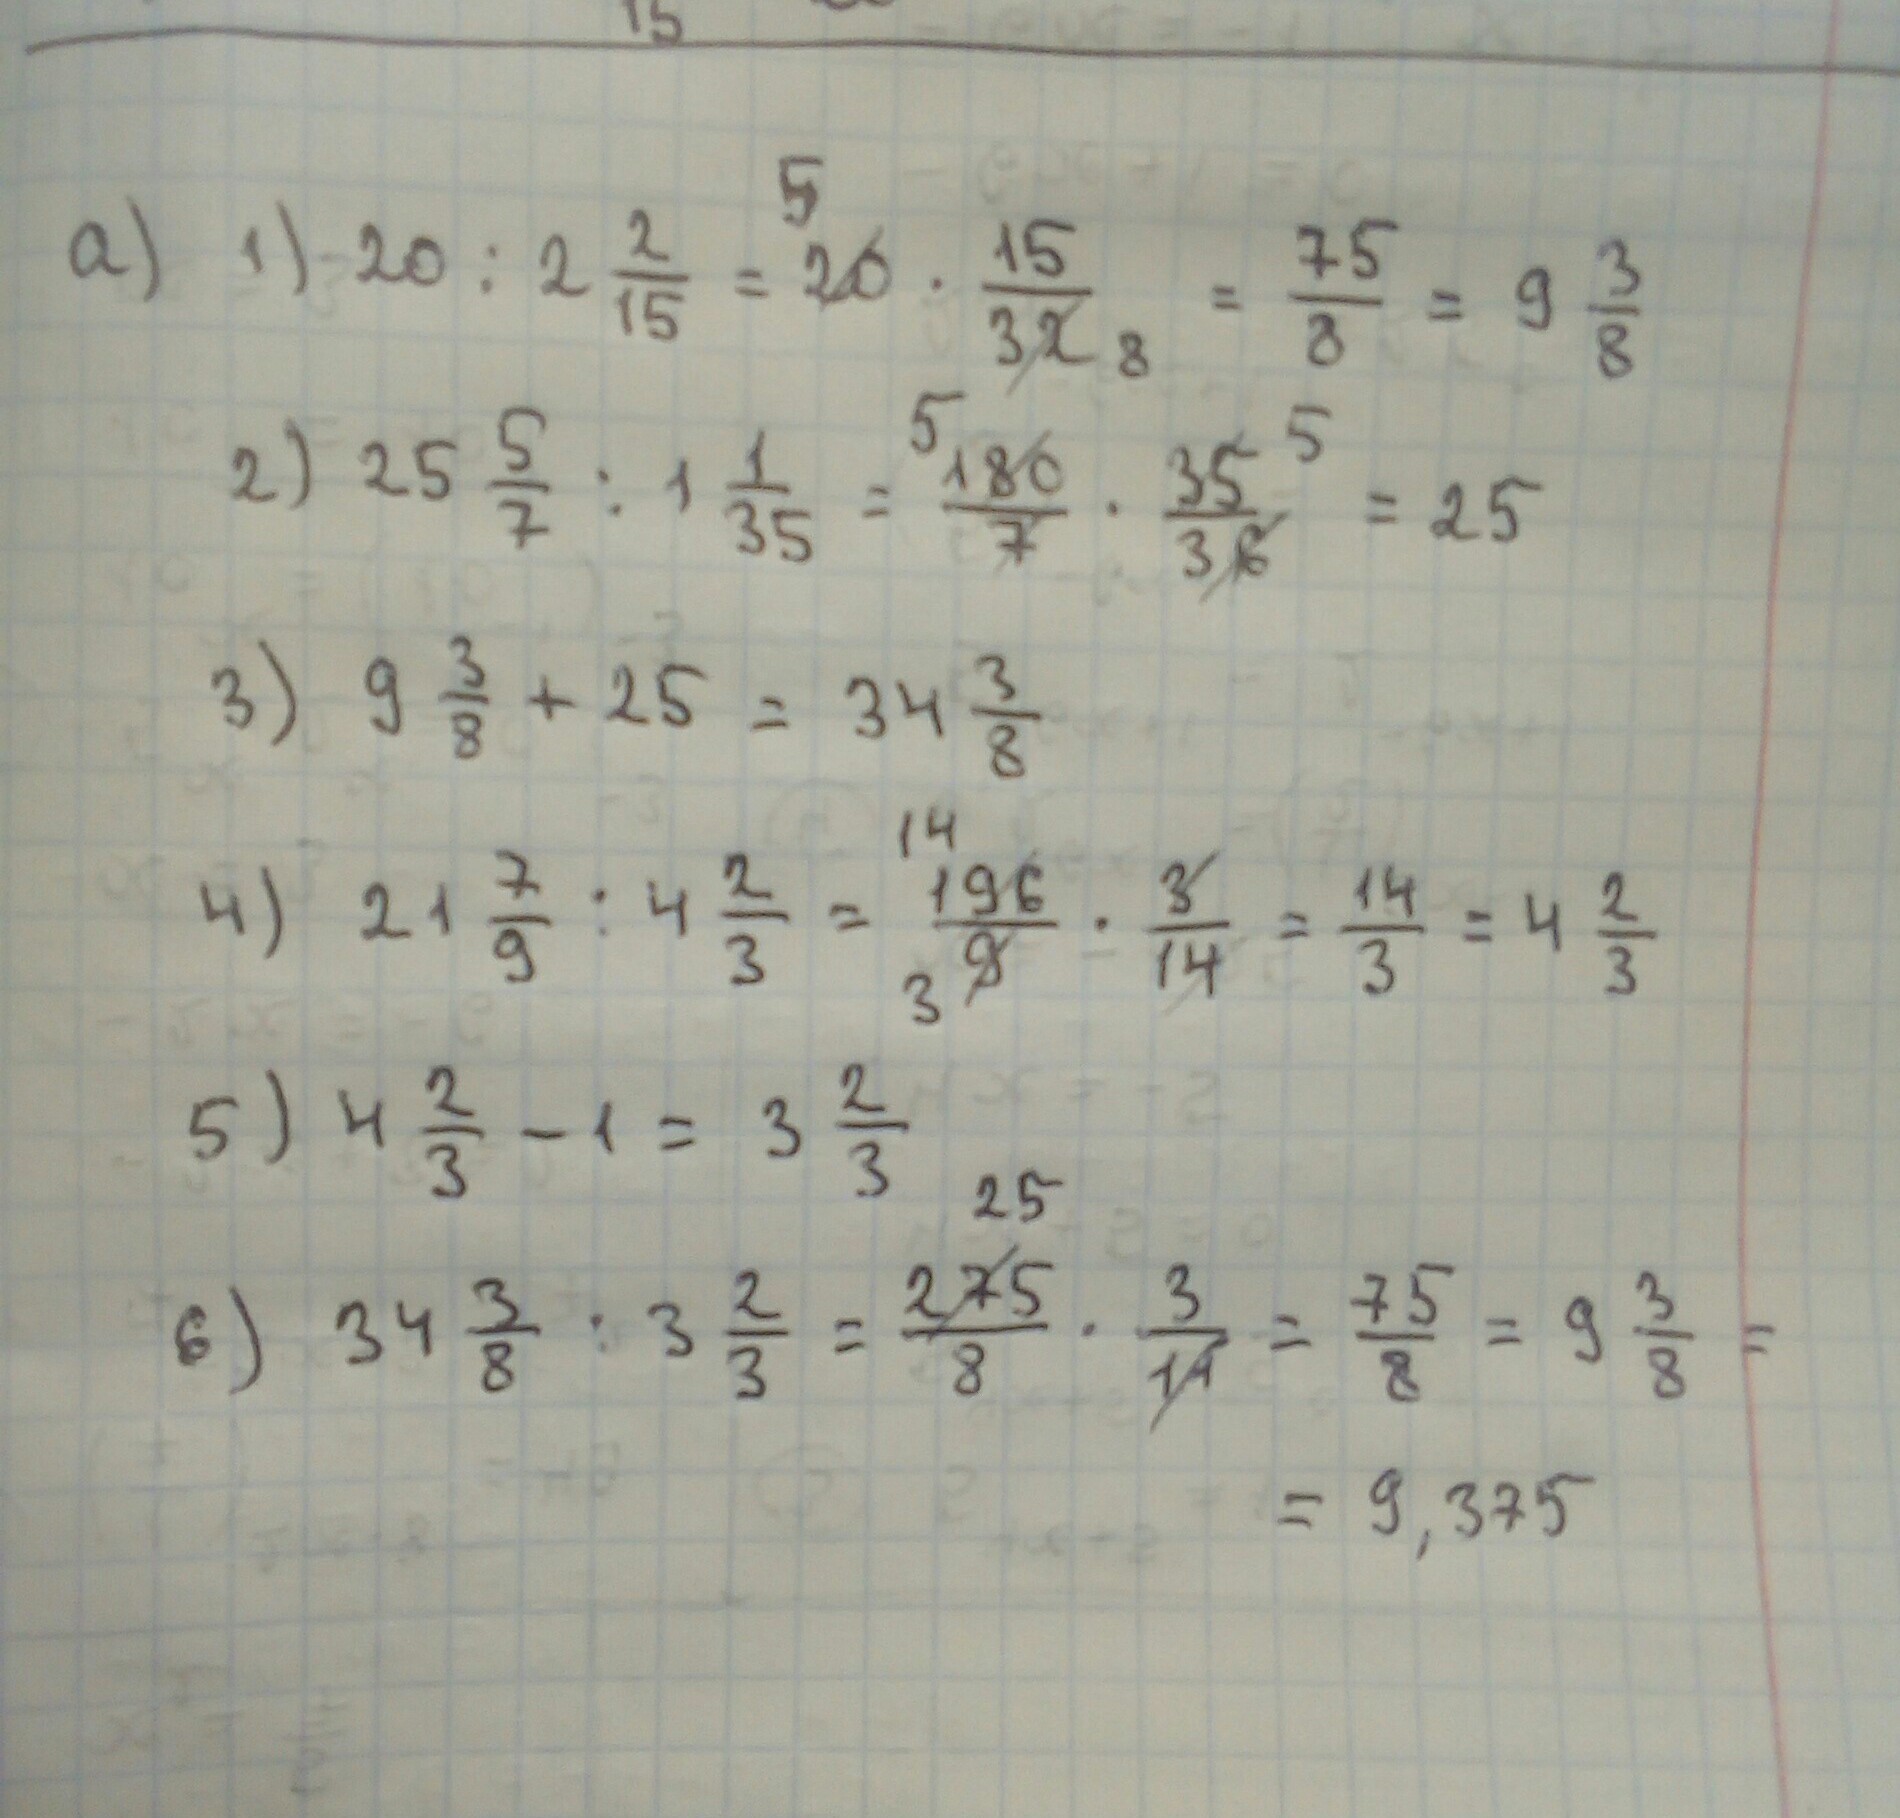 15
а) 1) 20 : 2 2/15 = 5 20 · 15/32 8 = 75/8 = 9 3/8
2) 25 5/7 : 1 1/35 = 5 180/7 · 35/36 5 = 25
3) 9 3/8 + 25 = 34 3/8
4) 21 7/9 : 4 2/3 = 14 196/9 3 · 3/14 = 14/3 = 4 2/3
5) 4 2/3 - 1 = 3 2/3
6) 34 3/8 : 3 2/3 = 25 275/8 · 3/11 = 75/8 = 9 3/8 =
= 9,375